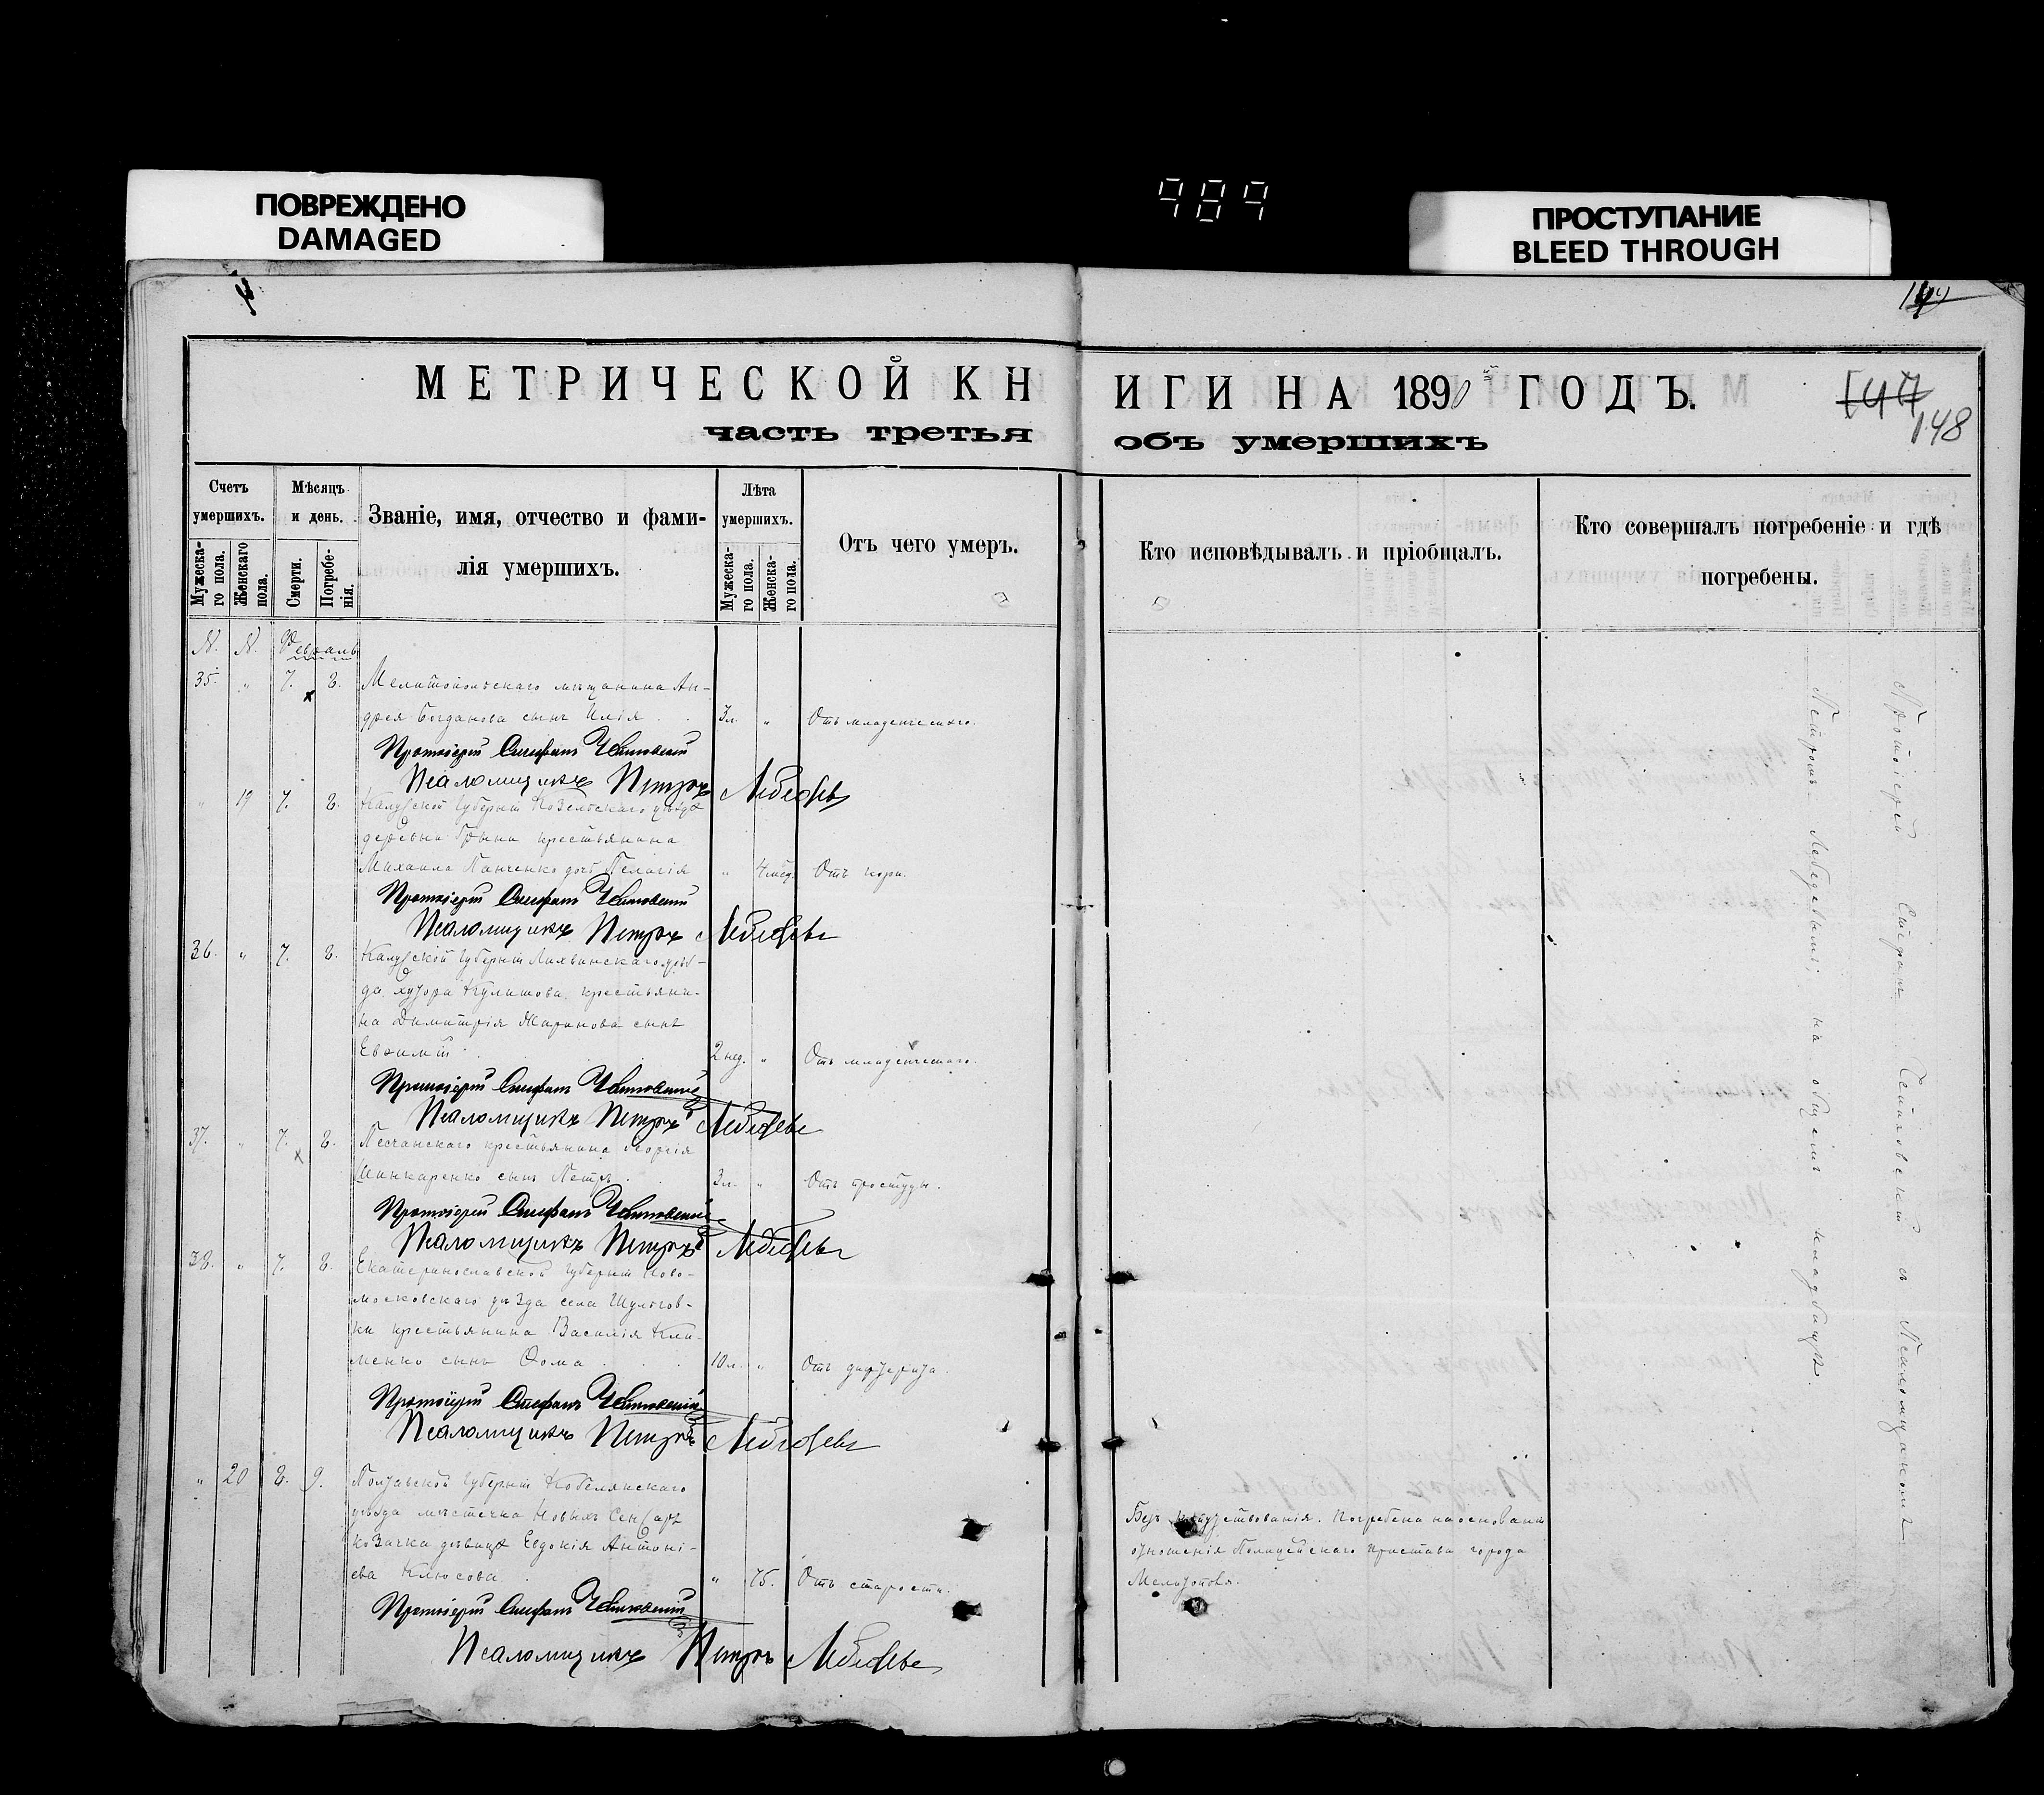 ПОВРЕЖДЕНО
DAMAGED
989
ПРОСТУПАНИЕ
BLEED THROUGH
МЕТРИЧЕСКОЙ КНИГИ НА 1890 ГОДЪ.
147
148
часть третья объ умершихъ
Счетъ умершихъ.
Мужескаго пола.
Женскаго пола.
Мѣсяцъ и день.
Смерти.
Погребенія.
Званіе, имя, отчество и фамилія умершихъ.
Лѣта умершихъ.
Мужескаго пола.
Женскаго пола.
Отъ чего умеръ.
Кто исповѣдывалъ и пріобщалъ.
Кто совершалъ погребеніе и гдѣ погребены.
N. N. Февраль
35. " 7. 8. Мелитопольскаго мѣщанина Ан-
дрея Богданова сынъ Илія . . 3 л. " Отъ младенческаго.
Протоіерей Стефанъ
Псаломщикъ Петръ Лебедевъ
" 19 7. 8. Калужской губерніи Козельскаго уѣзда
деревни крестьянина
Михаила Панченко дочь Пелагія " 4 нед. Отъ кори.
Протоіерей Стефанъ
Псаломщикъ Петръ Лебедевъ
36. " 7. 8. Калужской губерніи Лихвинскаго уѣз-
да хутора Кулишова крестьяни-
на Димитрія Жаринова сынъ
Евѳимій . 2 нед. " Отъ младенческаго.
Протоіерей Стефанъ
Псаломщикъ Петръ Лебедевъ
37. " 7. 8. Песчанскаго крестьянина Георгія
Шинкаренко сынъ Петръ . 3 л. " Отъ простуды.
Протоіерей Стефанъ
Псаломщикъ Петръ Лебедевъ
38. " 7. 8. Екатеринославской губерніи Ново-
московскаго уѣзда села Шульгов-
ки крестьянина Василія Кли-
менко сынъ Ѳома . . . 10 л. " Отъ дифтерита.
Протоіерей Стефанъ
Псаломщикъ Петръ Лебедевъ
" 20 8. 9. Полтавской губерніи Кобелякскаго
уѣзда мѣстечка Новыхъ Сенжаръ
козачка дѣвица Евдокія Антоні-
ева Клюсова . " 75. Отъ старости.
Протоіерей Стефанъ
Псаломщикъ Петръ Лебедевъ
Безъ напутствованія. Погребена на основаніи
отношенія Полицейскаго пристава города
Мелитополя.
Протоіерей Стефанъ съ Псаломщикомъ
Петромъ Лебедевымъ на общемъ кладбищѣ.